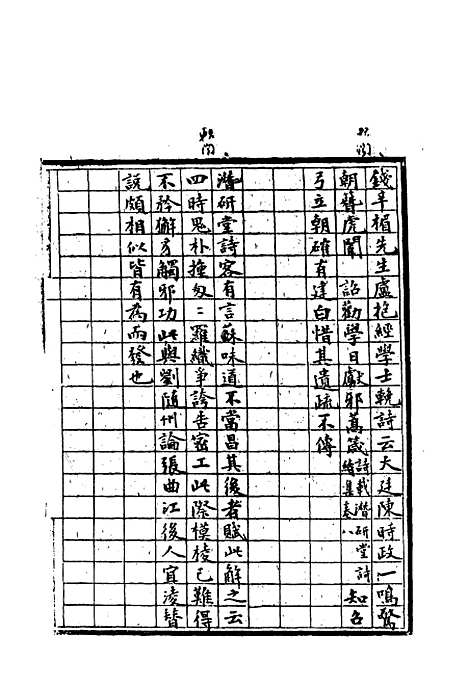 錢辛楣先生盧抱經學士輓詩云大廷陳時政一鳴驚
朝簪虎闈 詔勸學日獻邪蒿箴詩載潛研堂詩續集卷八知召
弓立朝確有建白惜其遺疏不傳
潛研堂詩客有言蘇味道不當昌其後者賦此解之云
四時鬼朴摠匆二羅織爭誇告密工此際模棱已難得
不矜獬豸觸邪功此與劉隨州論張曲江後人宜淩替
說頗相似皆有為而發也